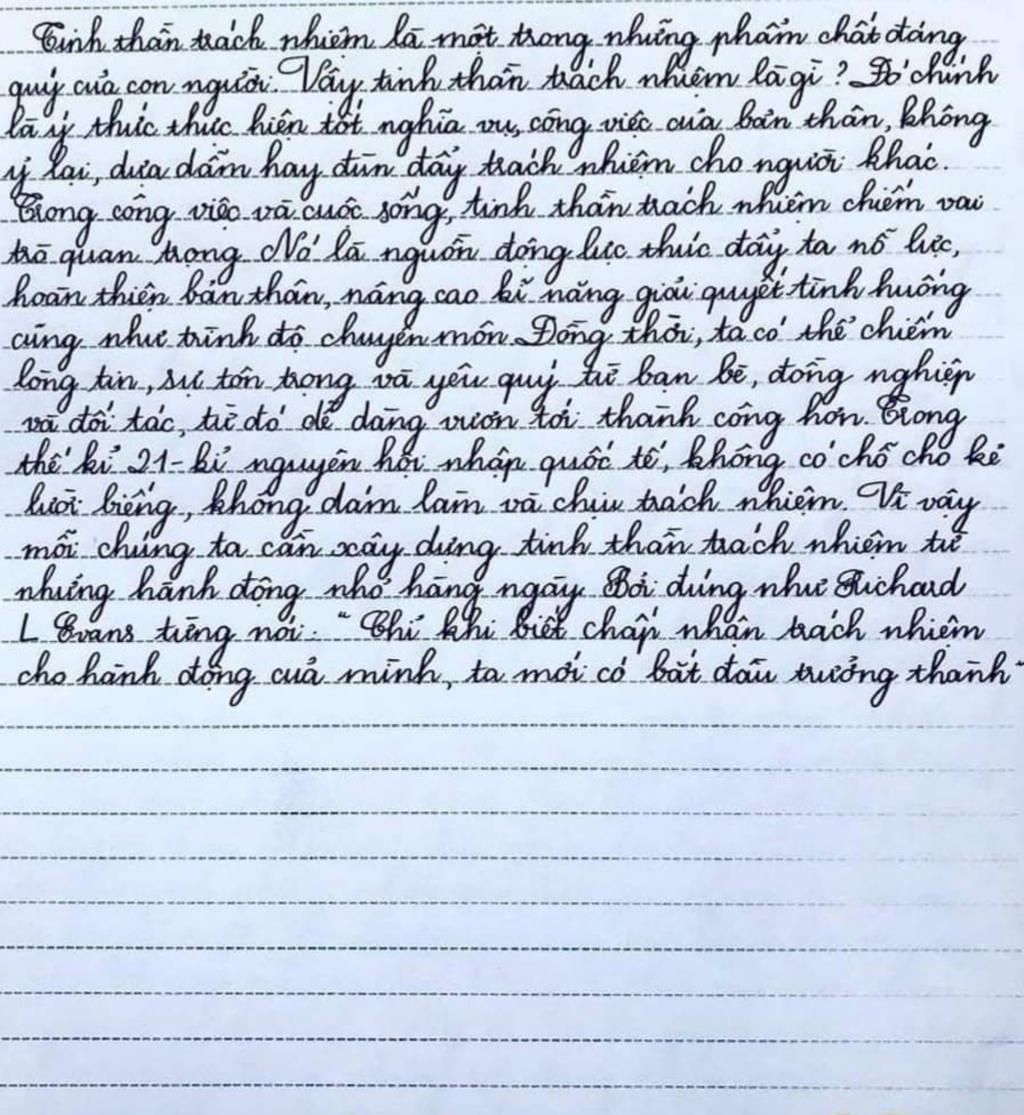 Tinh thần trách nhiệm là một trong những phẩm chất đáng
quý của con người. Vậy tinh thần trách nhiệm là gì? Đó chính
là ý thức thực hiện tốt nghĩa vụ, công việc của bản thân, không
ỷ lại, dựa dẫm hay đùn đẩy trách nhiệm cho người khác.
Trong công việc và cuộc sống, tinh thần trách nhiệm chiếm vai
trò quan trọng. Nó là nguồn động lực thúc đẩy ta nỗ lực,
hoàn thiện bản thân, nâng cao kĩ năng giải quyết tình huống
cũng như trình độ chuyên môn. Đồng thời, ta có thể chiếm
lòng tin, sự tôn trọng và yêu quý từ bạn bè, đồng nghiệp
và đối tác, từ đó dễ dàng vươn tới thành công hơn. Trong
thế kỉ 21 - kỉ nguyên hội nhập quốc tế, không có chỗ cho kẻ
lười biếng, không dám làm và chịu trách nhiệm. Vì vậy
mỗi chúng ta cần xây dựng tinh thần trách nhiệm từ
những hành động nhỏ hàng ngày. Bởi đúng như Richard
L Evans từng nói: "Chỉ khi biết chấp nhận trách nhiệm
cho hành động của mình, ta mới có bắt đầu trưởng thành"